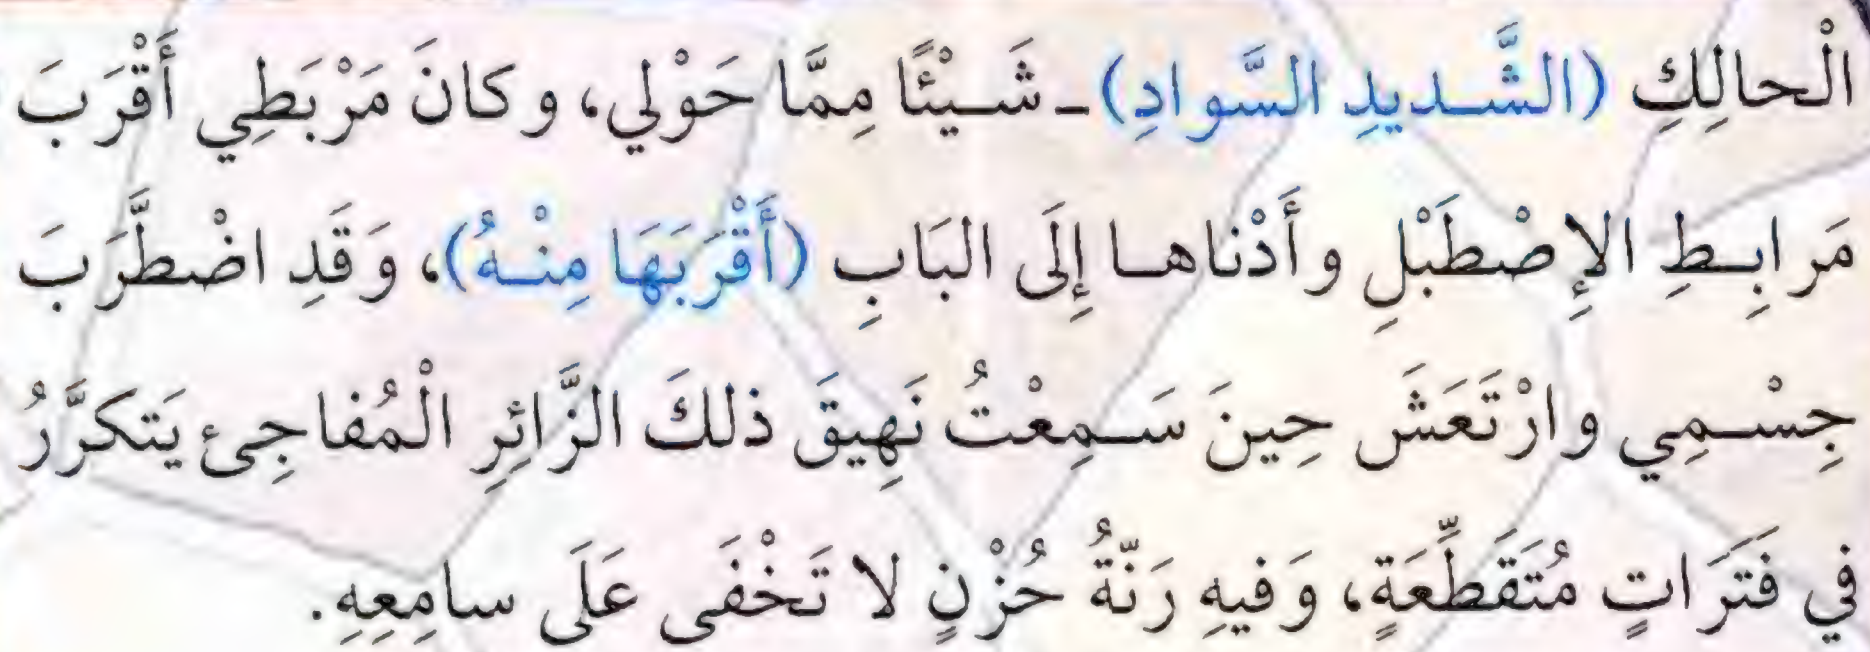 الْحالِكِ (الشَّديدِ السَّوادِ) ـ شَيْئًا مِمَّا حَوْلي، وكانَ مَرْبَطِي أَقْرَبَ
مَرابِطِ الإِصْطَبْلِ وأَدْناها إِلَى البَابِ (أَقْرَبَهَا مِنْهُ)، وَقَدِ اضْطَّرَبَ
جِسْمِي وارْتَعَشَ حِينَ سَمِعْتُ نَهِيقَ ذلكَ الزَّائِرِ الْمُفاجِئ يَتكرَّرُ
في فَتَرَاتٍ مُتَقَطِّعَةٍ، وَفيهِ رَنّةُ حُزْنٍ لا تَخْفَى عَلَى سامِعِهِ.